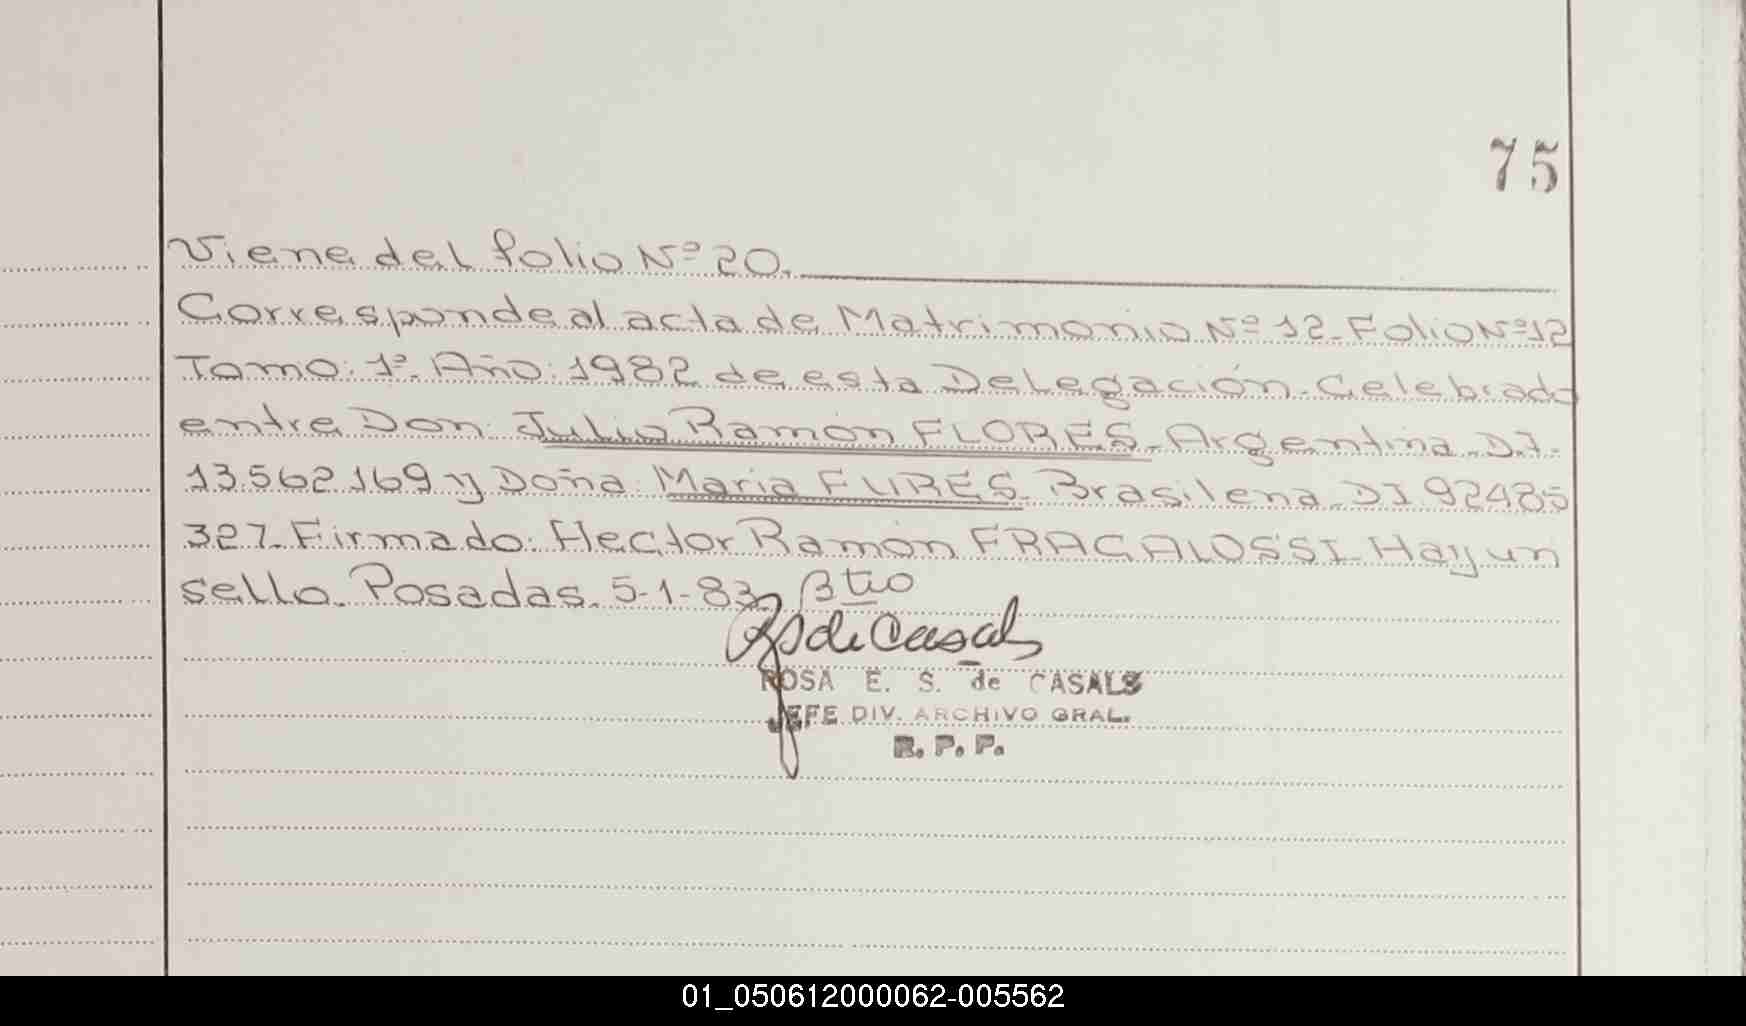 75
Viene del folio Nº 20.
Corresponde al acta de Matrimonio Nº 12. Folio Nº 12
Tomo: 1º. Año: 1982 de esta Delegación. Celebrado
entre Don: Julio Ramón FLORES. Argentina. D.I.
13.562.169 y Doña: Maria FLIRES. Brasilena. DI 92485
327. Firmado: Hector Ramón FRAGALOSSI. Hay un
sello. Posadas. 5-1-83.
RS de Casals
ROSA E. S. de CASALS
JEFE DIV. ARCHIVO GRAL.
R. P. P.
01_050612000062-005562